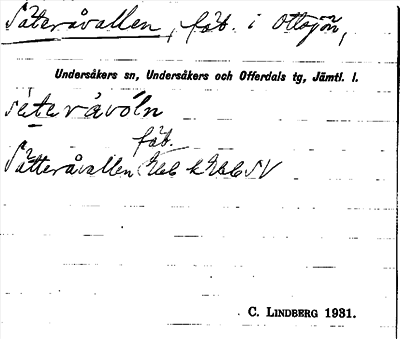 Säteråvallen, fäb. i Ottsjön,
Undersåkers sn, Undersåkers och Offerdals tg, Jämtl. l.
sèteråvóln
fäb.
Sätteråvallen Gtb k Gtb SV
C. LINDBERG 1931.